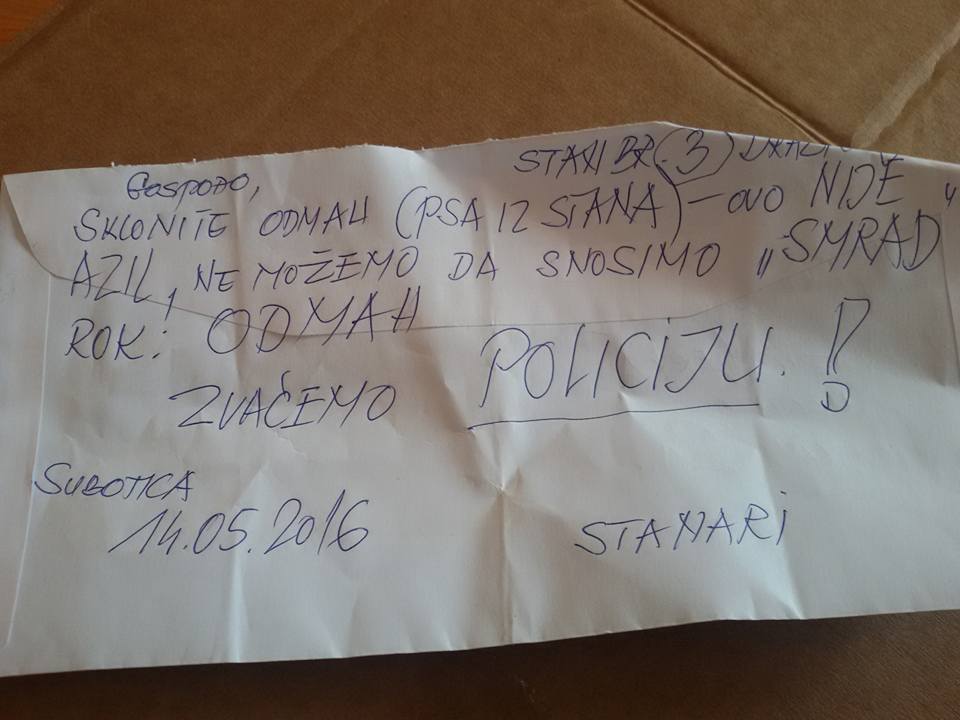 STAN BR. (3)
Gospodo,
SKLONITE ODMAH (PSA IZ STANA) - OVO NIJE
AZIL, NE MOŽEMO DA SNOSIMO „SMRAD"
ROK: ODMAH
ZVAĆEMO POLICIJU. !
SUBOTICA
14.05.2016
STANARI